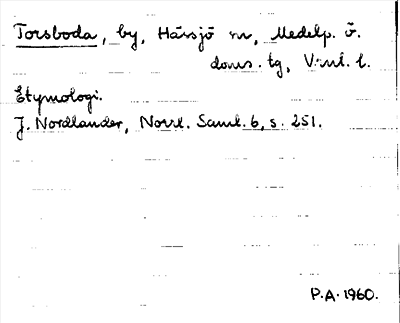 Torsboda, by, Hässjö sn, Medelp. ö.
doms. tg, V:nl. l.
Etymologi.
J. Nordlander, Norrl. Saml. 6, s. 251.
P.A. 1960.